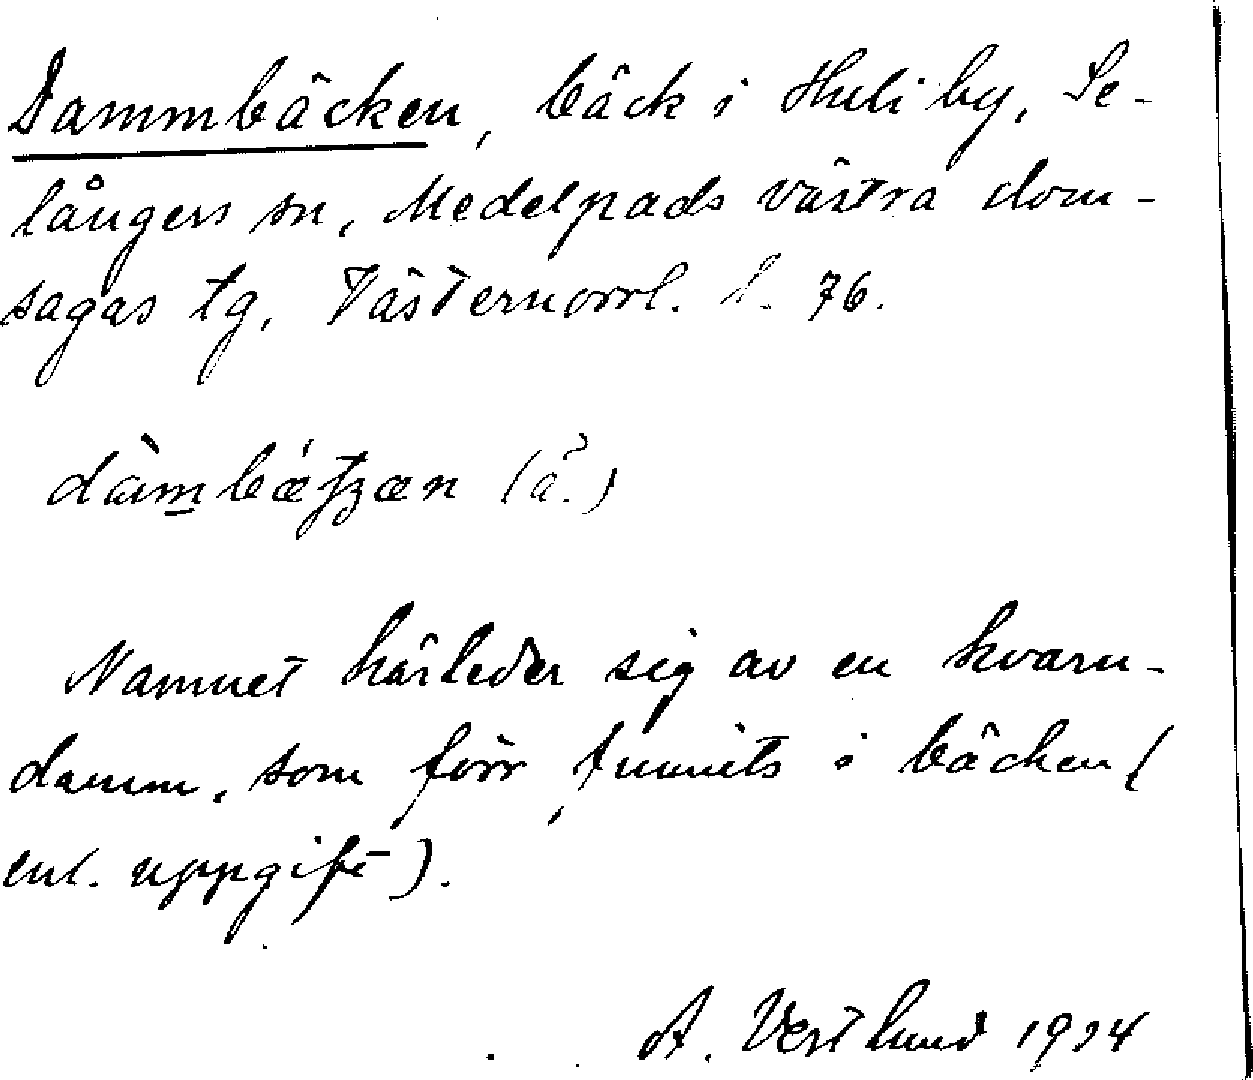 Dammbäcken, bäck i Huli by, Se-
långers sn, Medelpads västra dom-
sagas tg, Västernorrl. l. 76.
(å.)
Namnet härleder sig av en kvarn-
damm, som förr funnits i bäcken (
enl. uppgift).
A. Vestlund 1924